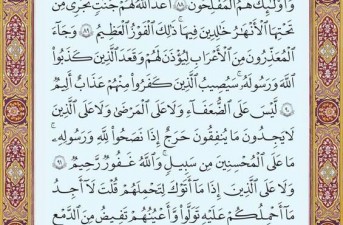 وَأُولَٰئِكَ هُمُ ٱلْمُفْلِحُونَ ٨٨ أَعَدَّ ٱللَّهُ لَهُمْ جَنَّٰتٍ تَجْرِى مِن
تَحْتِهَا ٱلْأَنْهَٰرُ خَٰلِدِينَ فِيهَا ۚ ذَٰلِكَ ٱلْفَوْزُ ٱلْعَظِيمُ ٨٩ وَجَآءَ
ٱلْمُعَذِّرُونَ مِنَ ٱلْأَعْرَابِ لِيُؤْذَنَ لَهُمْ وَقَعَدَ ٱلَّذِينَ كَذَبُوا۟
ٱللَّهَ وَرَسُولَهُۥ ۚ سَيُصِيبُ ٱلَّذِينَ كَفَرُوا۟ مِنْهُمْ عَذَابٌ أَلِيمٌ
٩٠ لَّيْسَ عَلَى ٱلضُّعَفَآءِ وَلَا عَلَى ٱلْمَرْضَىٰ وَلَا عَلَى ٱلَّذِينَ
لَا يَجِدُونَ مَا يُنفِقُونَ حَرَجٌ إِذَا نَصَحُوا۟ لِلَّهِ وَرَسُولِهِۦ ۚ
مَا عَلَى ٱلْمُحْسِنِينَ مِن سَبِيلٍ ۚ وَٱللَّهُ غَفُورٌ رَّحِيمٌ ٩١
وَلَا عَلَى ٱلَّذِينَ إِذَا مَآ أَتَوْكَ لِتَحْمِلَهُمْ قُلْتَ لَآ أَجِدُ
مَآ أَحْمِلُكُمْ عَلَيْهِ تَوَلَّوا۟ وَّأَعْيُنُهُمْ تَفِيضُ مِنَ ٱلدَّمْعِ